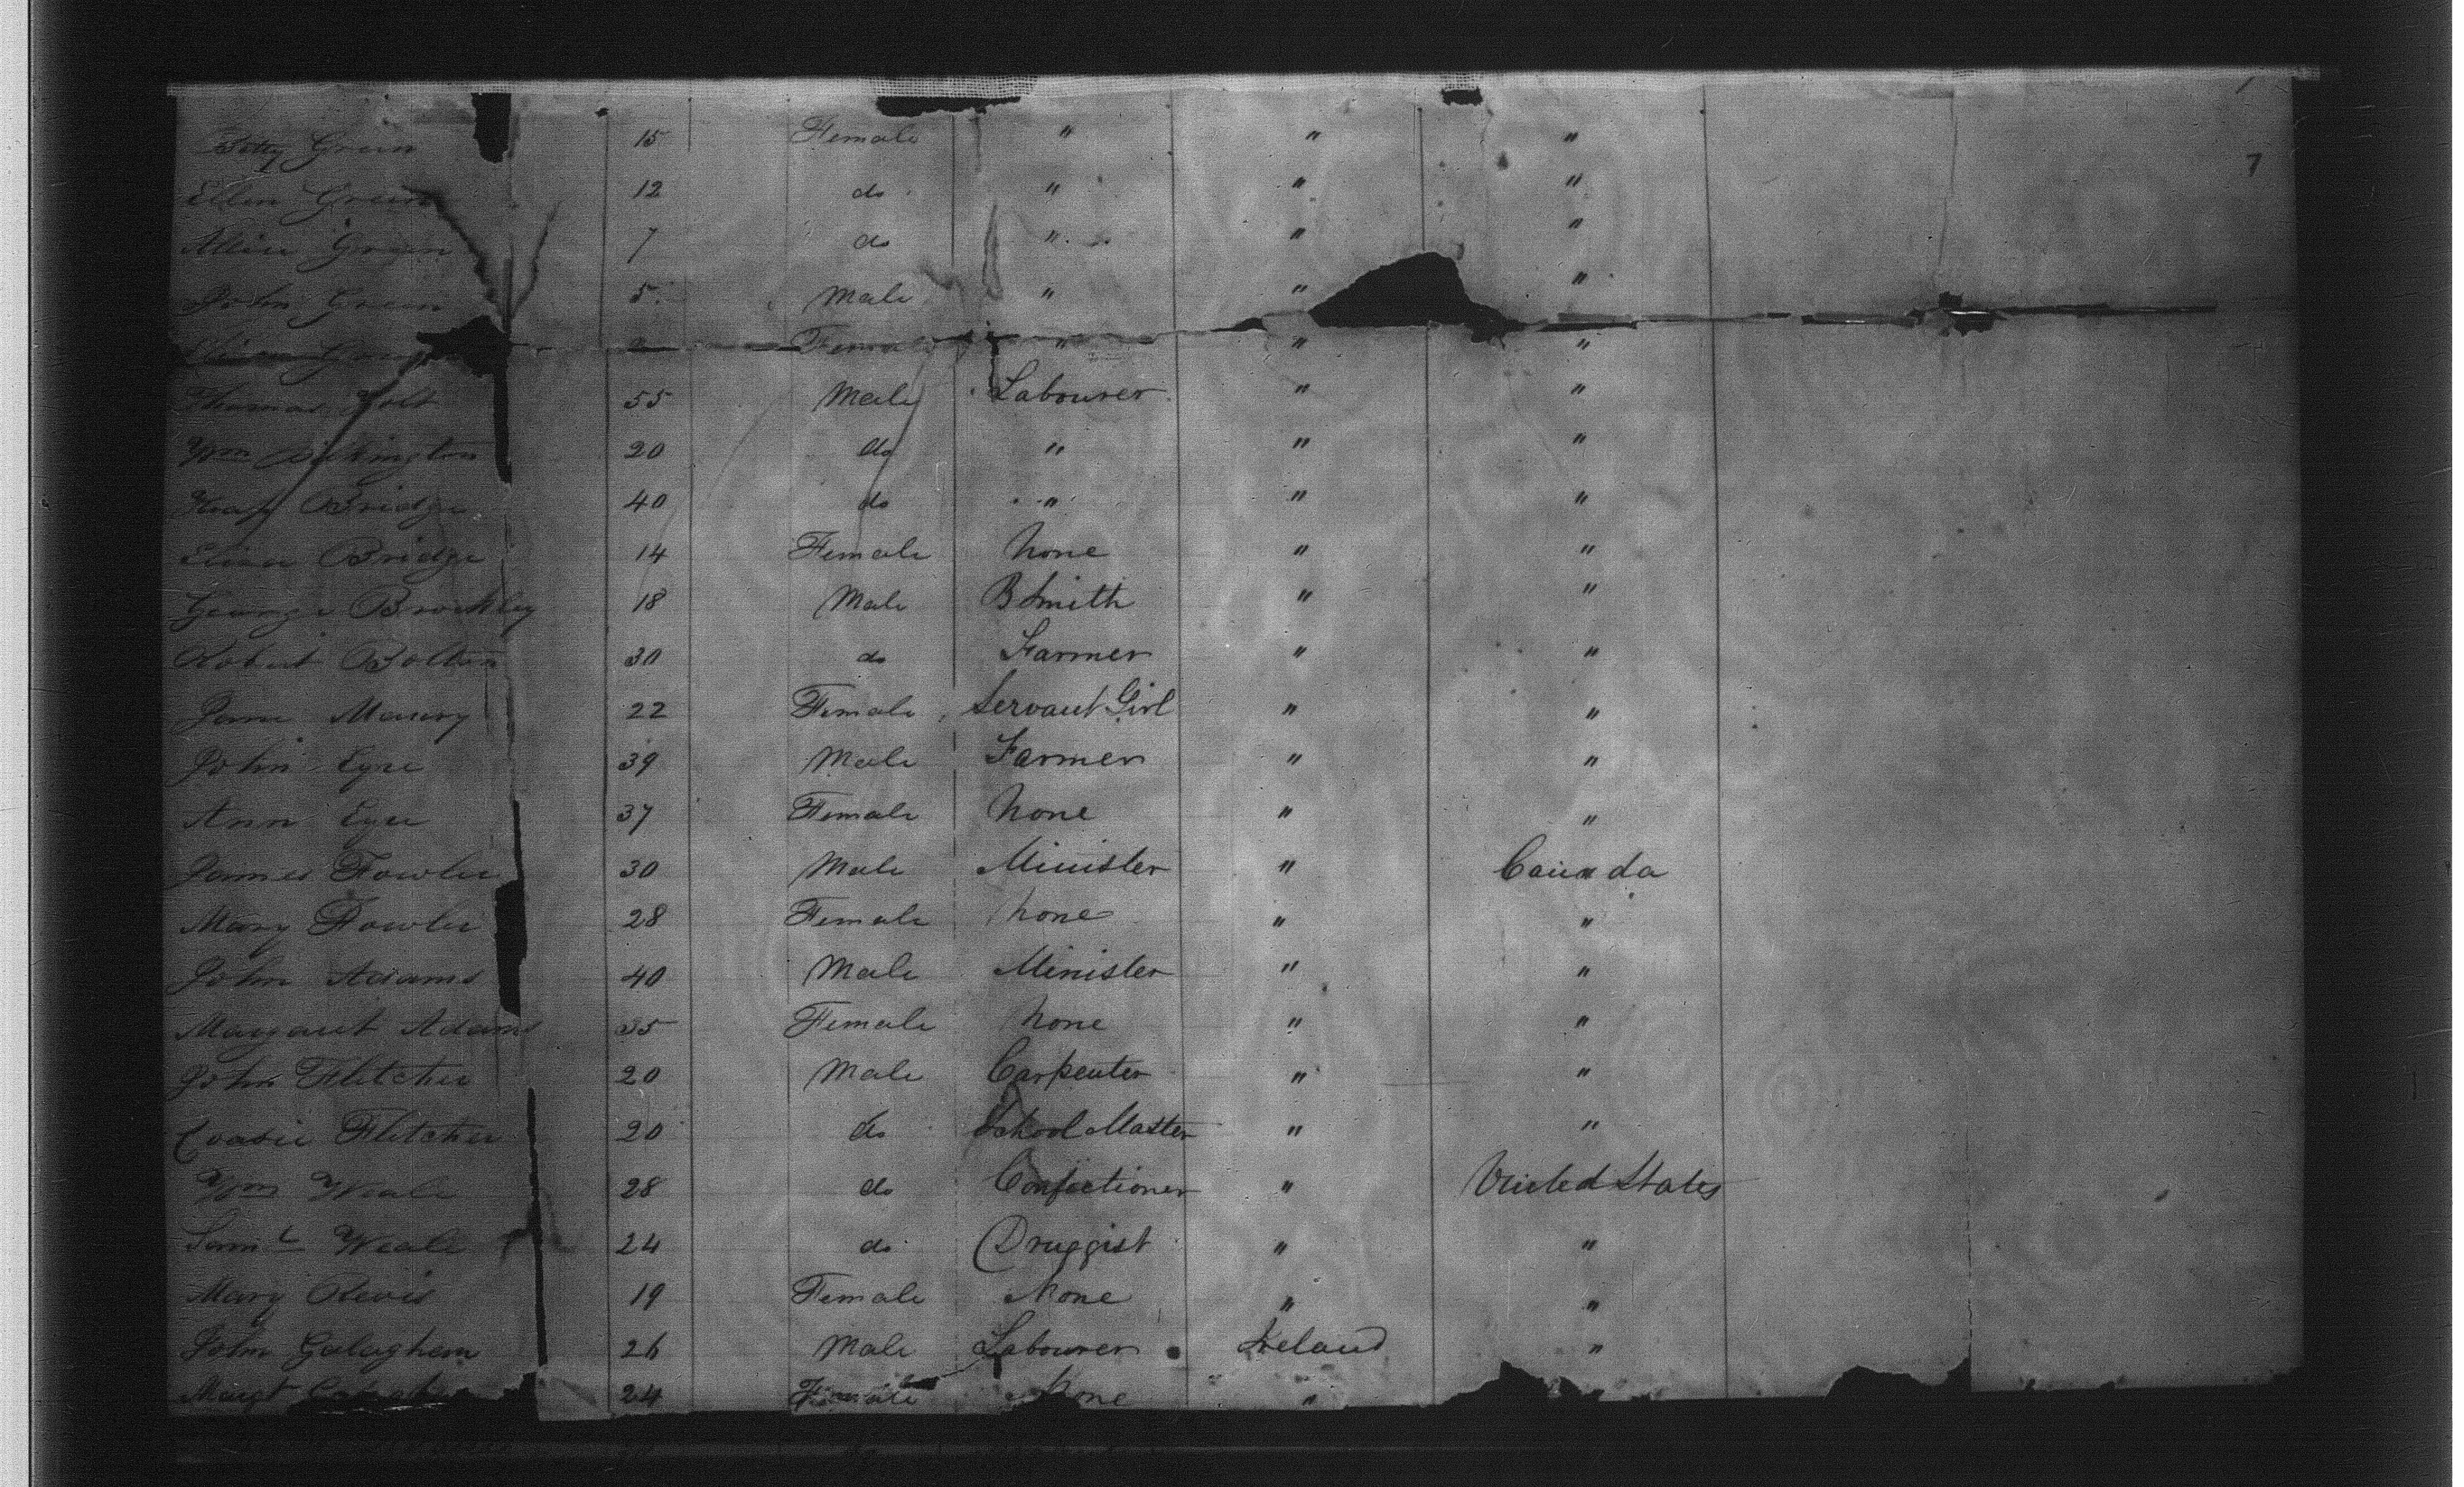 Betty Green 15 Female " " "
Ellen Green 12 do " " "
7
Alice Green 7 do " " "
John Green 5 Male " " "
Green Female " " "
Thomas Holt 55 Male Labourer " "
Wm 20 do " " "
Bridge 40 do " " "
Eliza Bridge 14 Female None " "
George Brockley 18 Male BSmith " "
Robert Bolton 30 do Farmer " "
Jane 22 Female Servant Girl " "
John Eyre 39 Male Farmer " "
Ann Eyre 37 Female None " "
James Fowler 30 Male Minister " Canada
Mary Fowler 28 Female None " "
John Adams 40 Male Minister " "
Margaret Adams 35 Female None " "
John Fletcher 20 Male Carpenter " "
Fletcher 20 do School Master " "
Wm Weale 28 do Confectioner " United States
Saml Weale 24 do Druggist " "
Mary 19 Female None " "
John Galaghem 26 Male Labourer Ireland "
Margt 24 Female None "